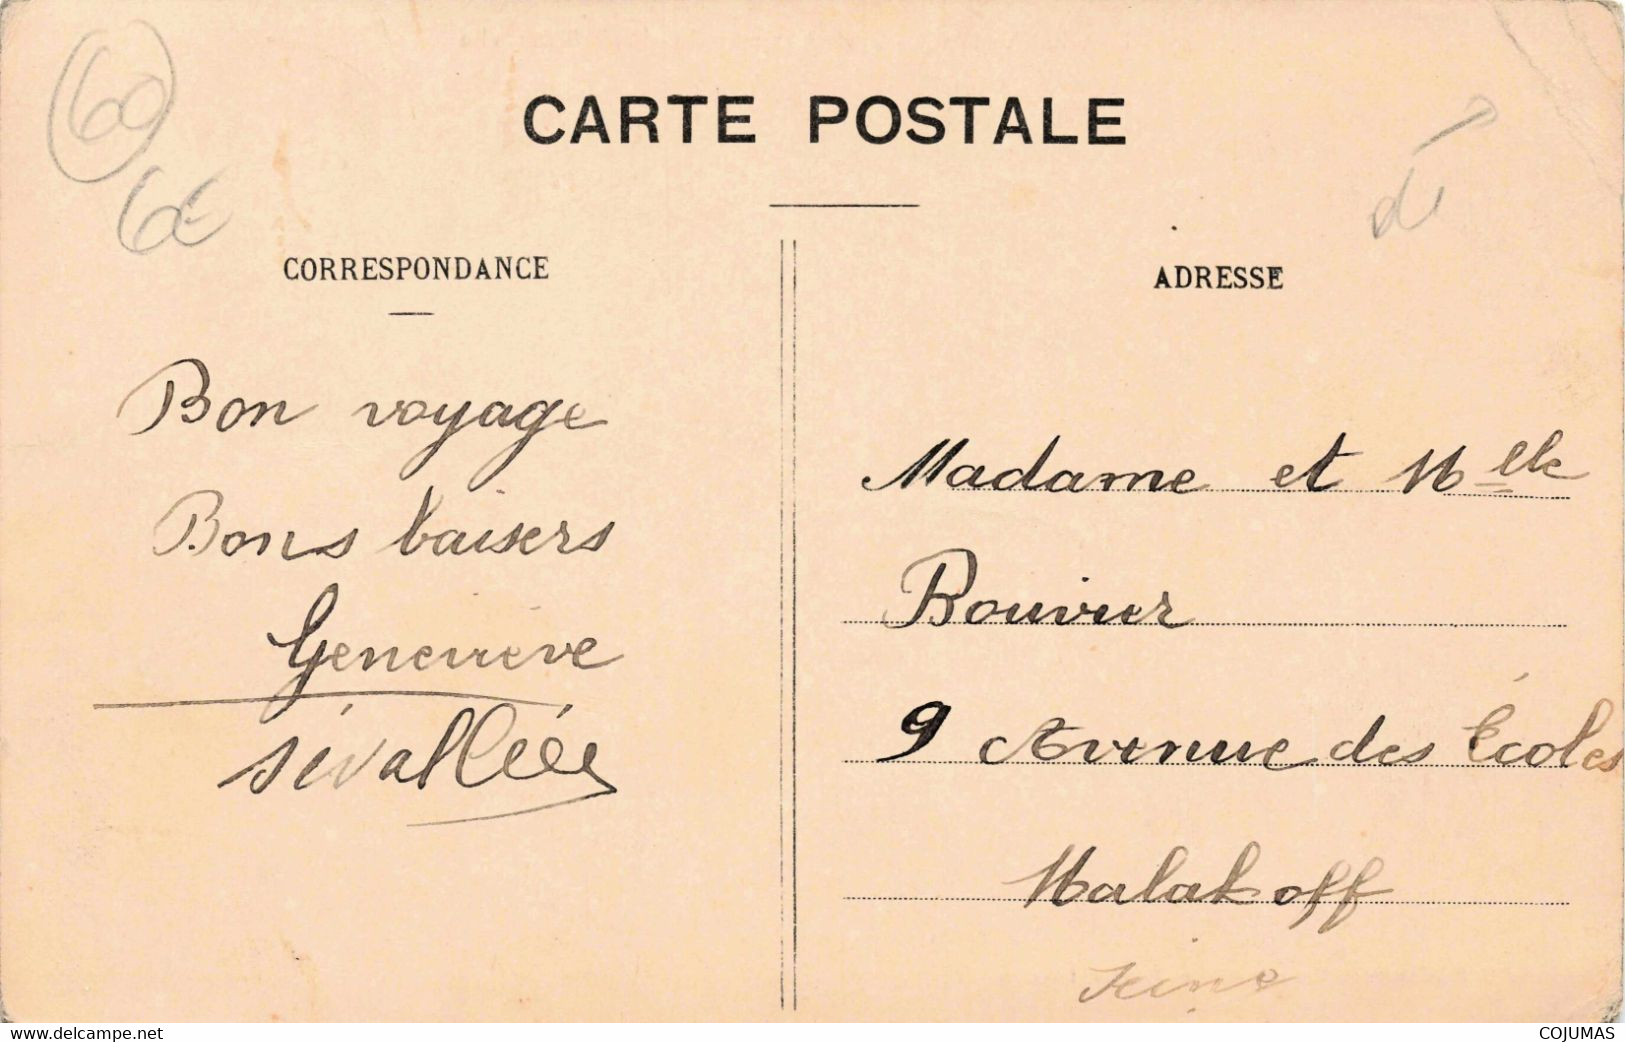 60
6€
CARTE POSTALE
CORRESPONDANCE
Bon voyage
Bons baisers
Geneviève
ADRESSE
Madame et Mlle
Bouvier
9 Avenue des Écoles
Malakoff
Seine
www.delcampe.net
COJUMAS